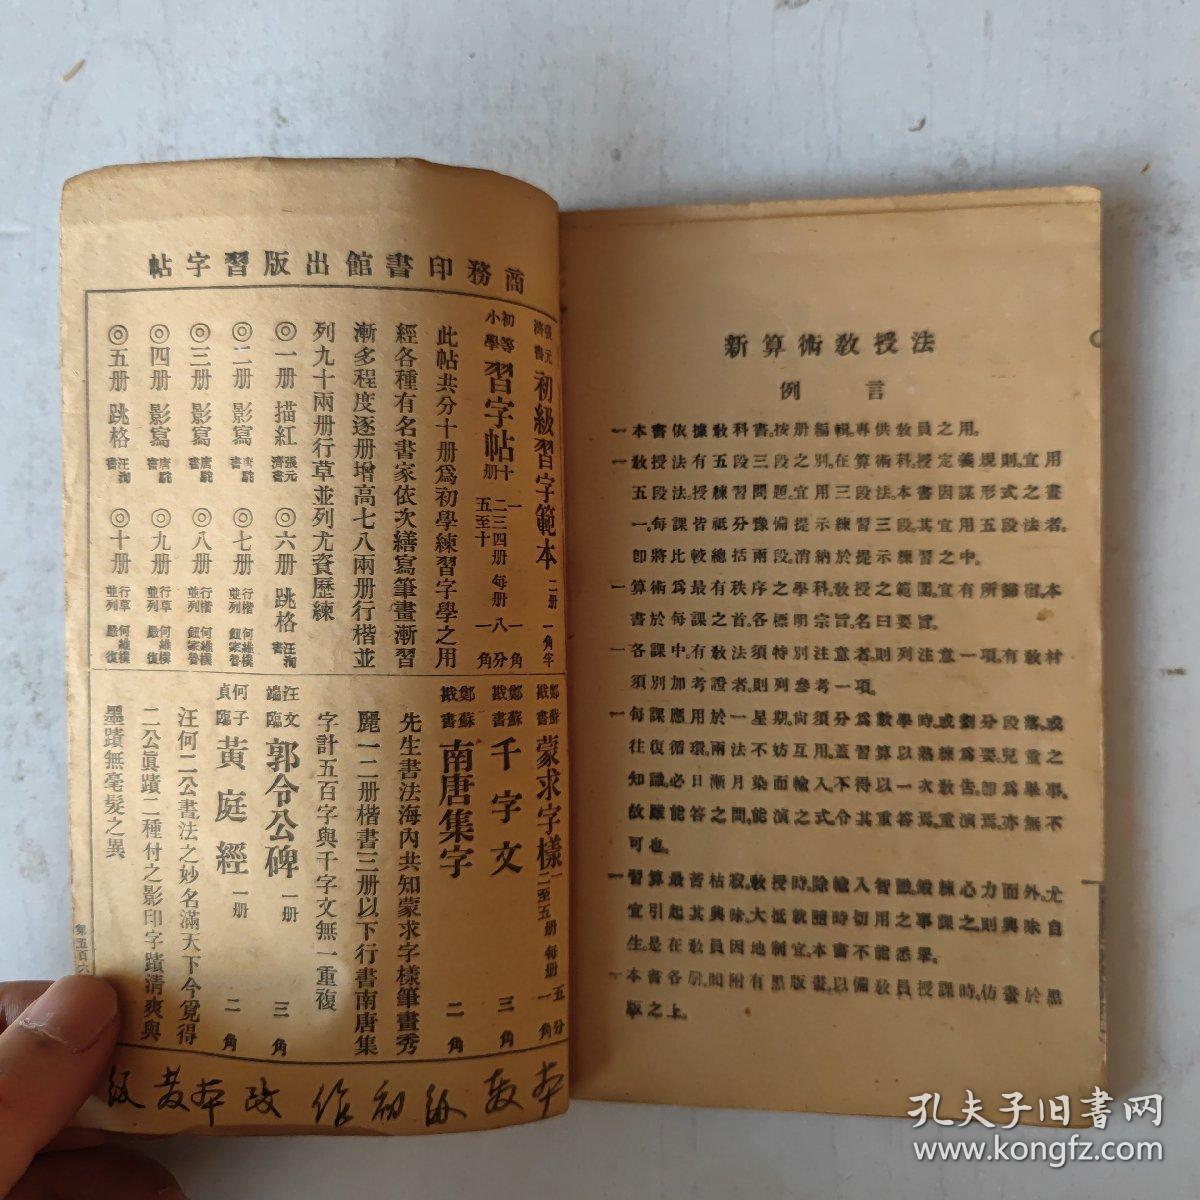 商務印書館出版習字帖
張元濟書 初級習字範本 二册 一角半
初等小學 習字帖 十册 一二三四册每册八分 五至十一角
此帖共分十册爲初學練習字學之用
經各種有名書家依次繕寫筆畫漸習
漸多程度逐册增高七八兩册行楷並
列九十兩册行草並列尤資歷練
◎一册 描紅 張元濟書 ◎六册 跳格 汪洵書
◎二册 影寫 ◎七册 行楷並列 何維樸 鈕家魯
◎三册 影寫 唐駝書 ◎八册 行楷並列 何維樸 鈕家魯
◎四册 影寫 唐駝書 ◎九册 行草並列 何維樸 嚴復
◎五册 跳格 汪洵書 ◎十册 行草並列 何維樸 嚴復
鄭蘇戡書 蒙求字樣 一 二至五册每册 一角 五分
鄭蘇戡書 千字文 三角
鄭蘇戡書 南唐集字 二角
先生書法海內共知蒙求字樣筆畫秀
麗一二册楷書三册以下行書南唐集
字計五百字與千字文無一重複
汪文端臨 郭令公碑 一册 三角
何子貞臨 黃庭經 一册 二角
汪何二公書法之妙名滿天下今覓得
二公眞蹟二種付之影印字蹟清爽與
墨蹟無毫髮之異
第五百六
新算術教授法
例言
一本書依據教科書。按册編輯。專供教員之用。
一教授法有五段三段之別。在算術科。授定義規則。宜用
五段法。授練習問題。宜用三段法。本書因謀形式之畫
一。每課皆祗分豫備提示練習三段。其宜用五段法者。
卽將比較總括兩段。消納於提示練習之中。
一算術爲最有秩序之學科。教授之範圍。宜有所歸宿。本
書於每課之首。各標明宗旨。名曰要旨。
一各課中。有教法須特別注意者。則列注意一項。有教材
須別加考證者。則列參考一項。
一每課應用於一星期。尙須分爲數學時。或劃分段落。或
往復循環。兩法不妨互用。蓋習算以熟練爲要。兒童之
知識。必日漸月染而輸入。不得以一次教吿。卽爲畢事。
故雖能答之問。能演之式。令其重答焉。重演焉。亦無不
可也。
一習算最苦枯寂。教授時。除輸入智識。鍛練心力而外。尤
宜引起其興味。大抵就隨時切用之事課之。則興味自
生。是在教員因地制宜。本書不能悉舉。
一本書各册。間附有黑版畫。以備教員授課時。仿畫於黑
版之上。
孔夫子旧書网
www.kongfz.com